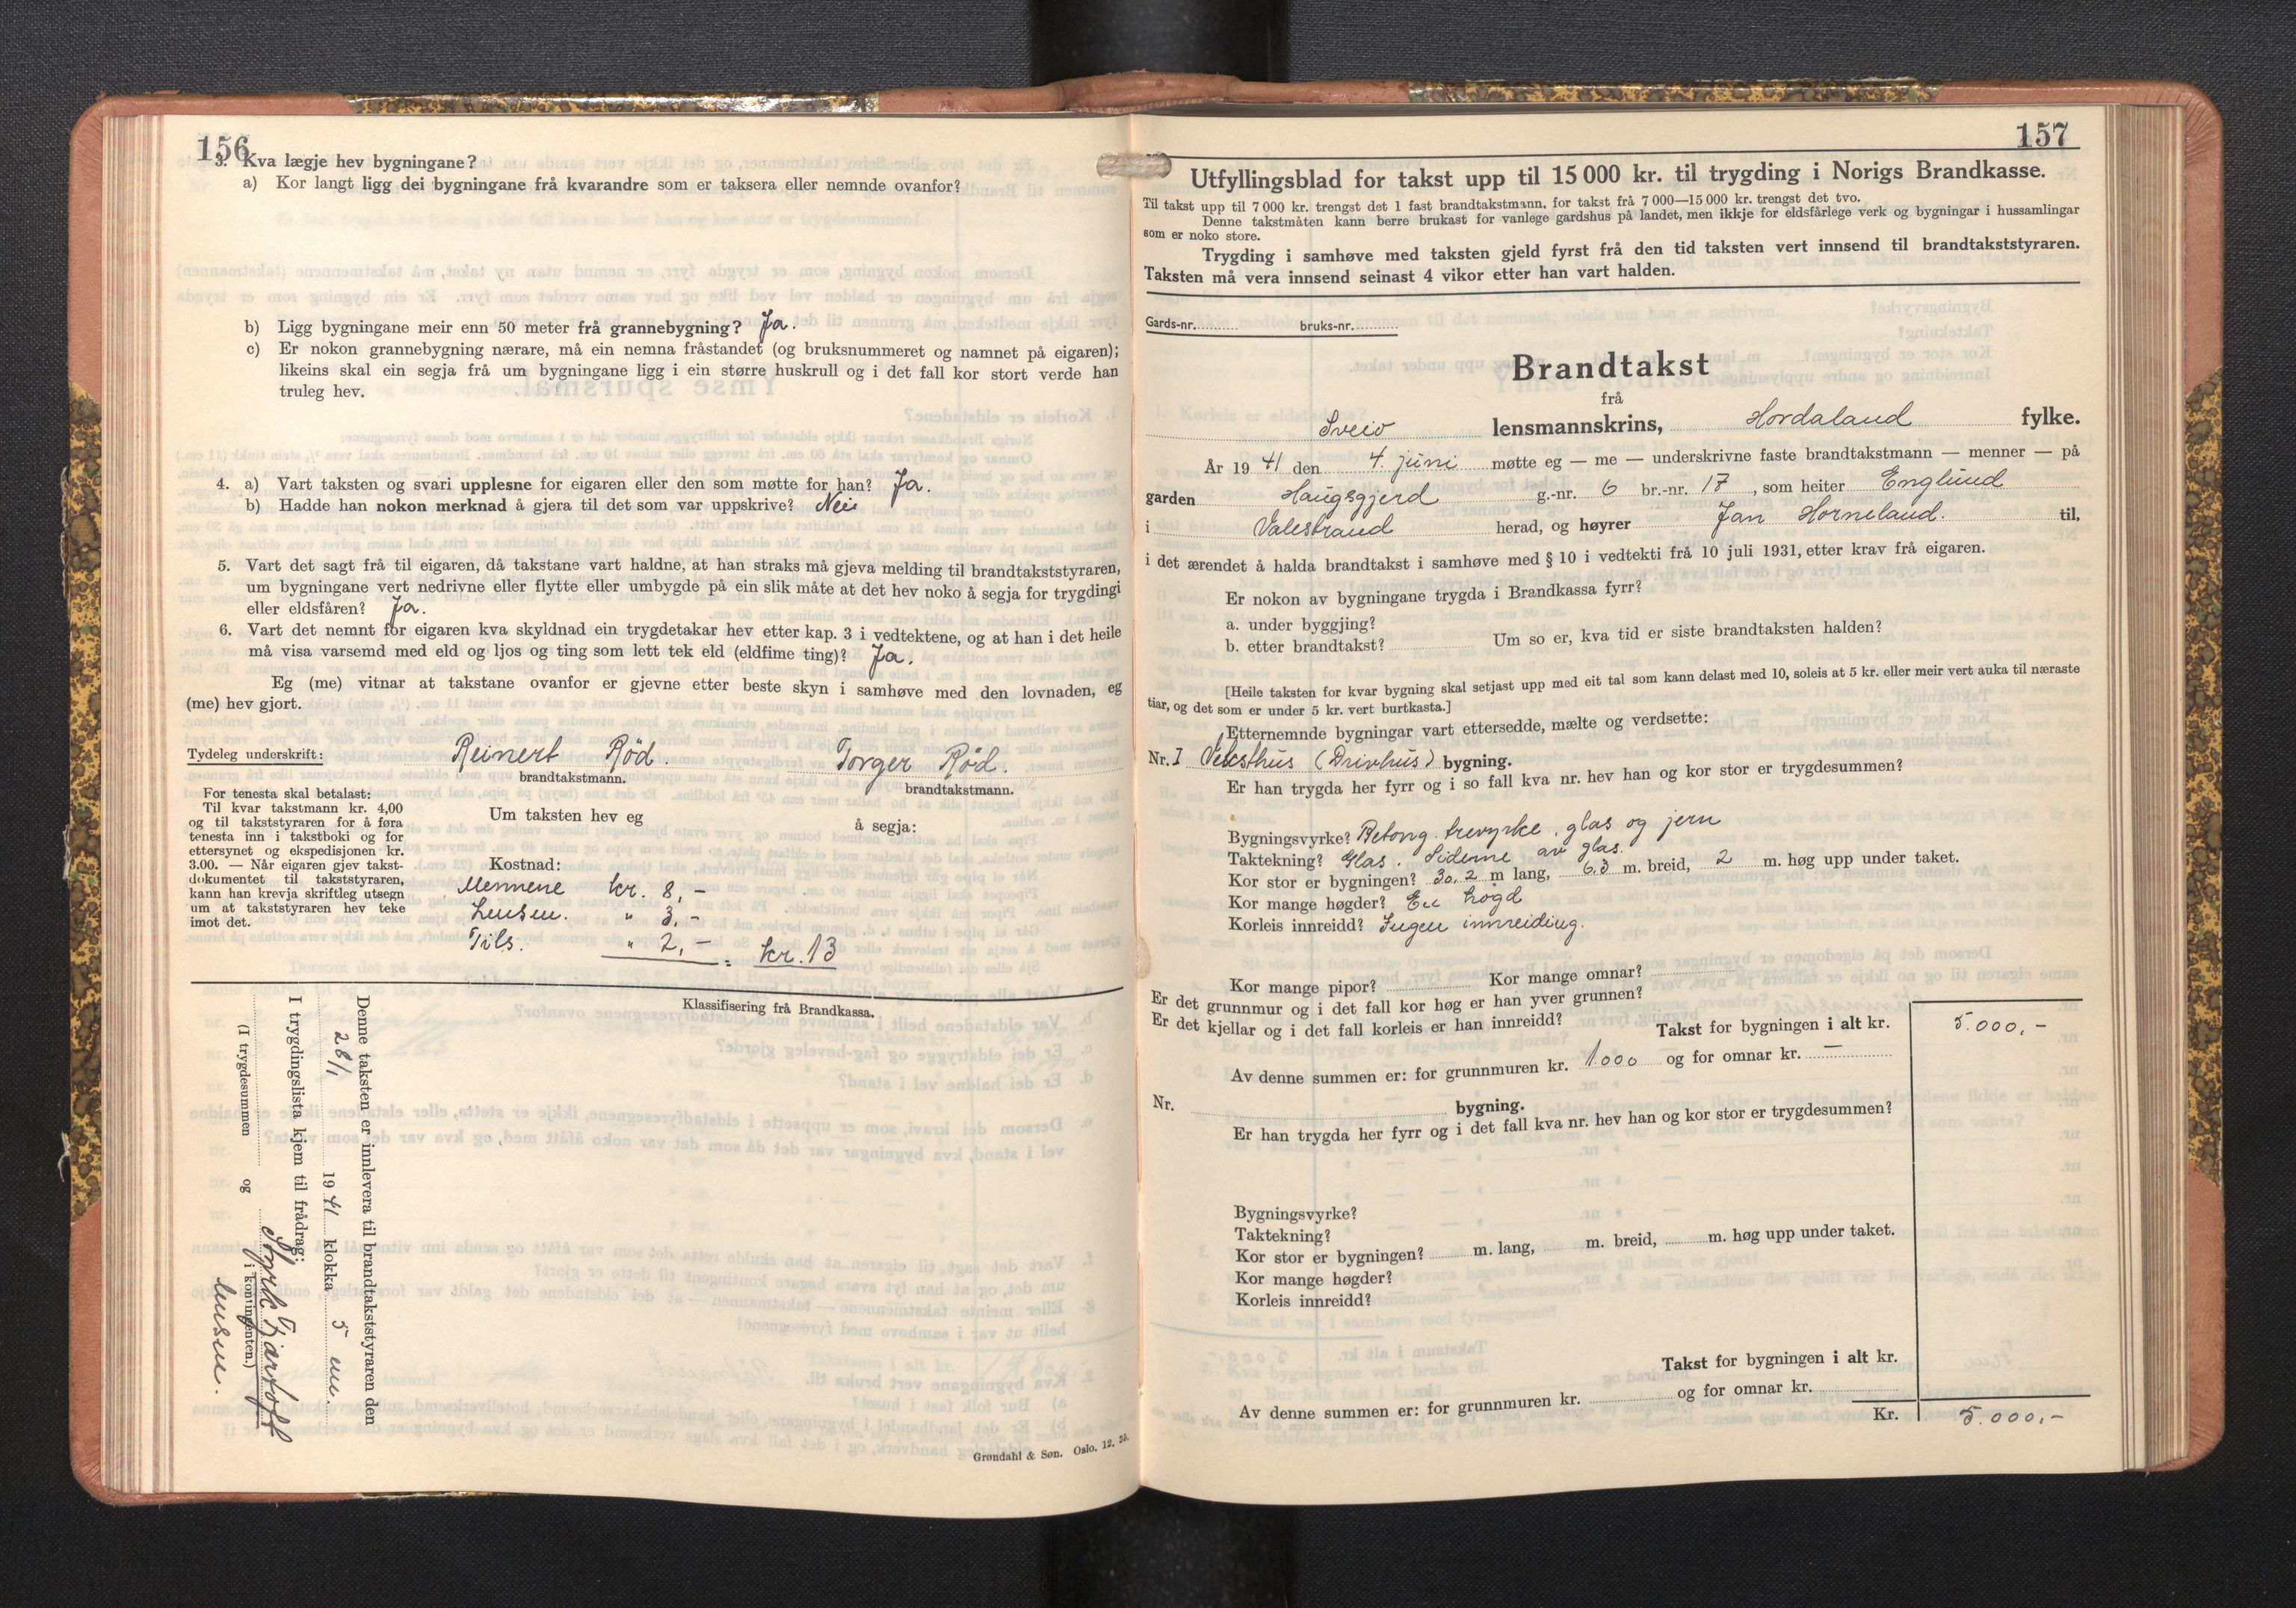 156
3. Kva lægje hev bygningane?
a) Kor langt ligg dei bygningane frå kvarandre som er taksera eller nemnde ovanfor?
b) Ligg bygningane meir enn 50 meter frå grannebygning? Ja.
c) Er nokon grannebygning nærare, må ein nemna fråstandet (og bruksnummeret og namnet på eigaren);
likeins skal ein segja frå um bygningane ligg i ein større huskrull og i det fall kor stort verde han
truleg hev.
4. a) Vart taksten og svari upplesne for eigaren eller den som møtte for han? Ja.
b) Hadde han nokon merknad å gjera til det som var uppskrive? Nei
5. Vart det sagt frå til eigaren, då takstane vart haldne, at han straks må gjeva melding til brandtakststyraren,
um bygningane vert nedrivne eller flytte eller umbygde på ein slik måte at det hev noko å segja for trygdingi
eller eldsfåren? Ja.
6. Vart det nemnt for eigaren kva skyldnad ein trygdetakar hev etter kap. 3 i vedtektene, og at han i det heile
må visa varsemd med eld og ljos og ting som lett tek eld (eldfime ting)? Ja.
Eg (me) vitnar at takstane ovanfor er gjevne etter beste skyn i samhøve med den lovnaden, eg
(me) hev gjort.
Tydeleg underskrift: Reinert Rød. Torger Rød.
brandtakstmann. brandtakstmann.
For tenesta skal betalast:
Til kvar takstmann kr. 4,00
og til takststyraren for å føra
tenesta inn i takstboki og for
ettersynet og ekspedisjonen kr.
3.00. — Når eigaren gjev takst-
dokumentet til takststyraren,
kann han krevja skriftleg utsegn
um at takststyraren hev teke
imot det.
Um taksten hev eg å segja:
Kostnad:
Mennene kr. 8,-
Lensm. " 3,-
Tils. " 2,- = kr. 13
Klassifisering frå Brandkassa.
Denne taksten er innlevera til brandtakststyraren den
28/1 1941 klokka 5 em.
I trygdingslista kjem til frådrag:
(I trygdesummen og i kontingenten.)
lensm.
Grøndahl & Søn. Oslo. 12.
157
Utfyllingsblad for takst upp til 15 000 kr. til trygding i Norigs Brandkasse.
Til takst upp til 7 000 kr. trengst det 1 fast brandtakstmann, for takst frå 7 000—15 000 kr. trengst det tvo.
Denne takstmåten kann berre brukast for vanlege gardshus på landet, men ikkje for eldsfårlege verk og bygningar i hussamlingar
som er noko store.
Trygding i samhøve med taksten gjeld fyrst frå den tid taksten vert innsend til brandtakststyraren.
Taksten må vera innsend seinast 4 vikor etter han vart halden.
Gards-nr. bruks-nr.
Brandtakst
frå
Sveio lensmannskrins, Hordaland fylke.
År 1941 den 4. juni møtte eg — me — underskrivne faste brandtakstmann — menner — på
garden Haugsgjerd g.-nr. 6 br.-nr. 17, som heiter Englund
i Valestrand herad, og høyrer Jan Horneland. til,
i det ærendet å halda brandtakst i samhøve med § 10 i vedtekti frå 10 juli 1931, etter krav frå eigaren.
Er nokon av bygningane trygda i Brandkassa fyrr?
a. under byggjing?
b. etter brandtakst? Um so er, kva tid er siste brandtaksten halden?
[Heile taksten for kvar bygning skal setjast upp med eit tal som kann delast med 10, soleis at 5 kr. eller meir vert auka til næraste
tiar, og det som er under 5 kr. vert burtkasta.]
Etternemnde bygningar vart ettersedde, mælte og verdsette:
Nr. I Veksthus (Drivhus) bygning.
Er han trygda her fyrr og i so fall kva nr. hev han og kor stor er trygdesummen?
Bygningsvyrke? Betong. trevyrke, glas og jern
Taktekning? Glas. Siderne av glas.
Kor stor er bygningen? 30.2 m lang, 6.3 m. breid, 2 m. høg upp under taket.
Kor mange høgder? Ei høgd
Korleis innreidd? Ingen innreiding.
Kor mange pipor? Kor mange omnar?
Er det grunnmur og i det fall kor høg er han yver grunnen?
Er det kjellar og i det fall korleis er han innreidd?
Takst for bygningen i alt kr. 5.000,-
Av denne summen er: for grunnmuren kr. 1.000 og for omnar kr. —
Nr. bygning.
Er han trygda her fyrr og i det fall kva nr. hev han og kor stor er trygdesummen?
Bygningsvyrke?
Taktekning?
Kor stor er bygningen? m. lang, m. breid, m. høg upp under taket.
Kor mange høgder?
Korleis innreidd?
Takst for bygningen i alt kr.
Av denne summen er: for grunnmuren kr. og for omnar kr.
Kr. 5.000,-